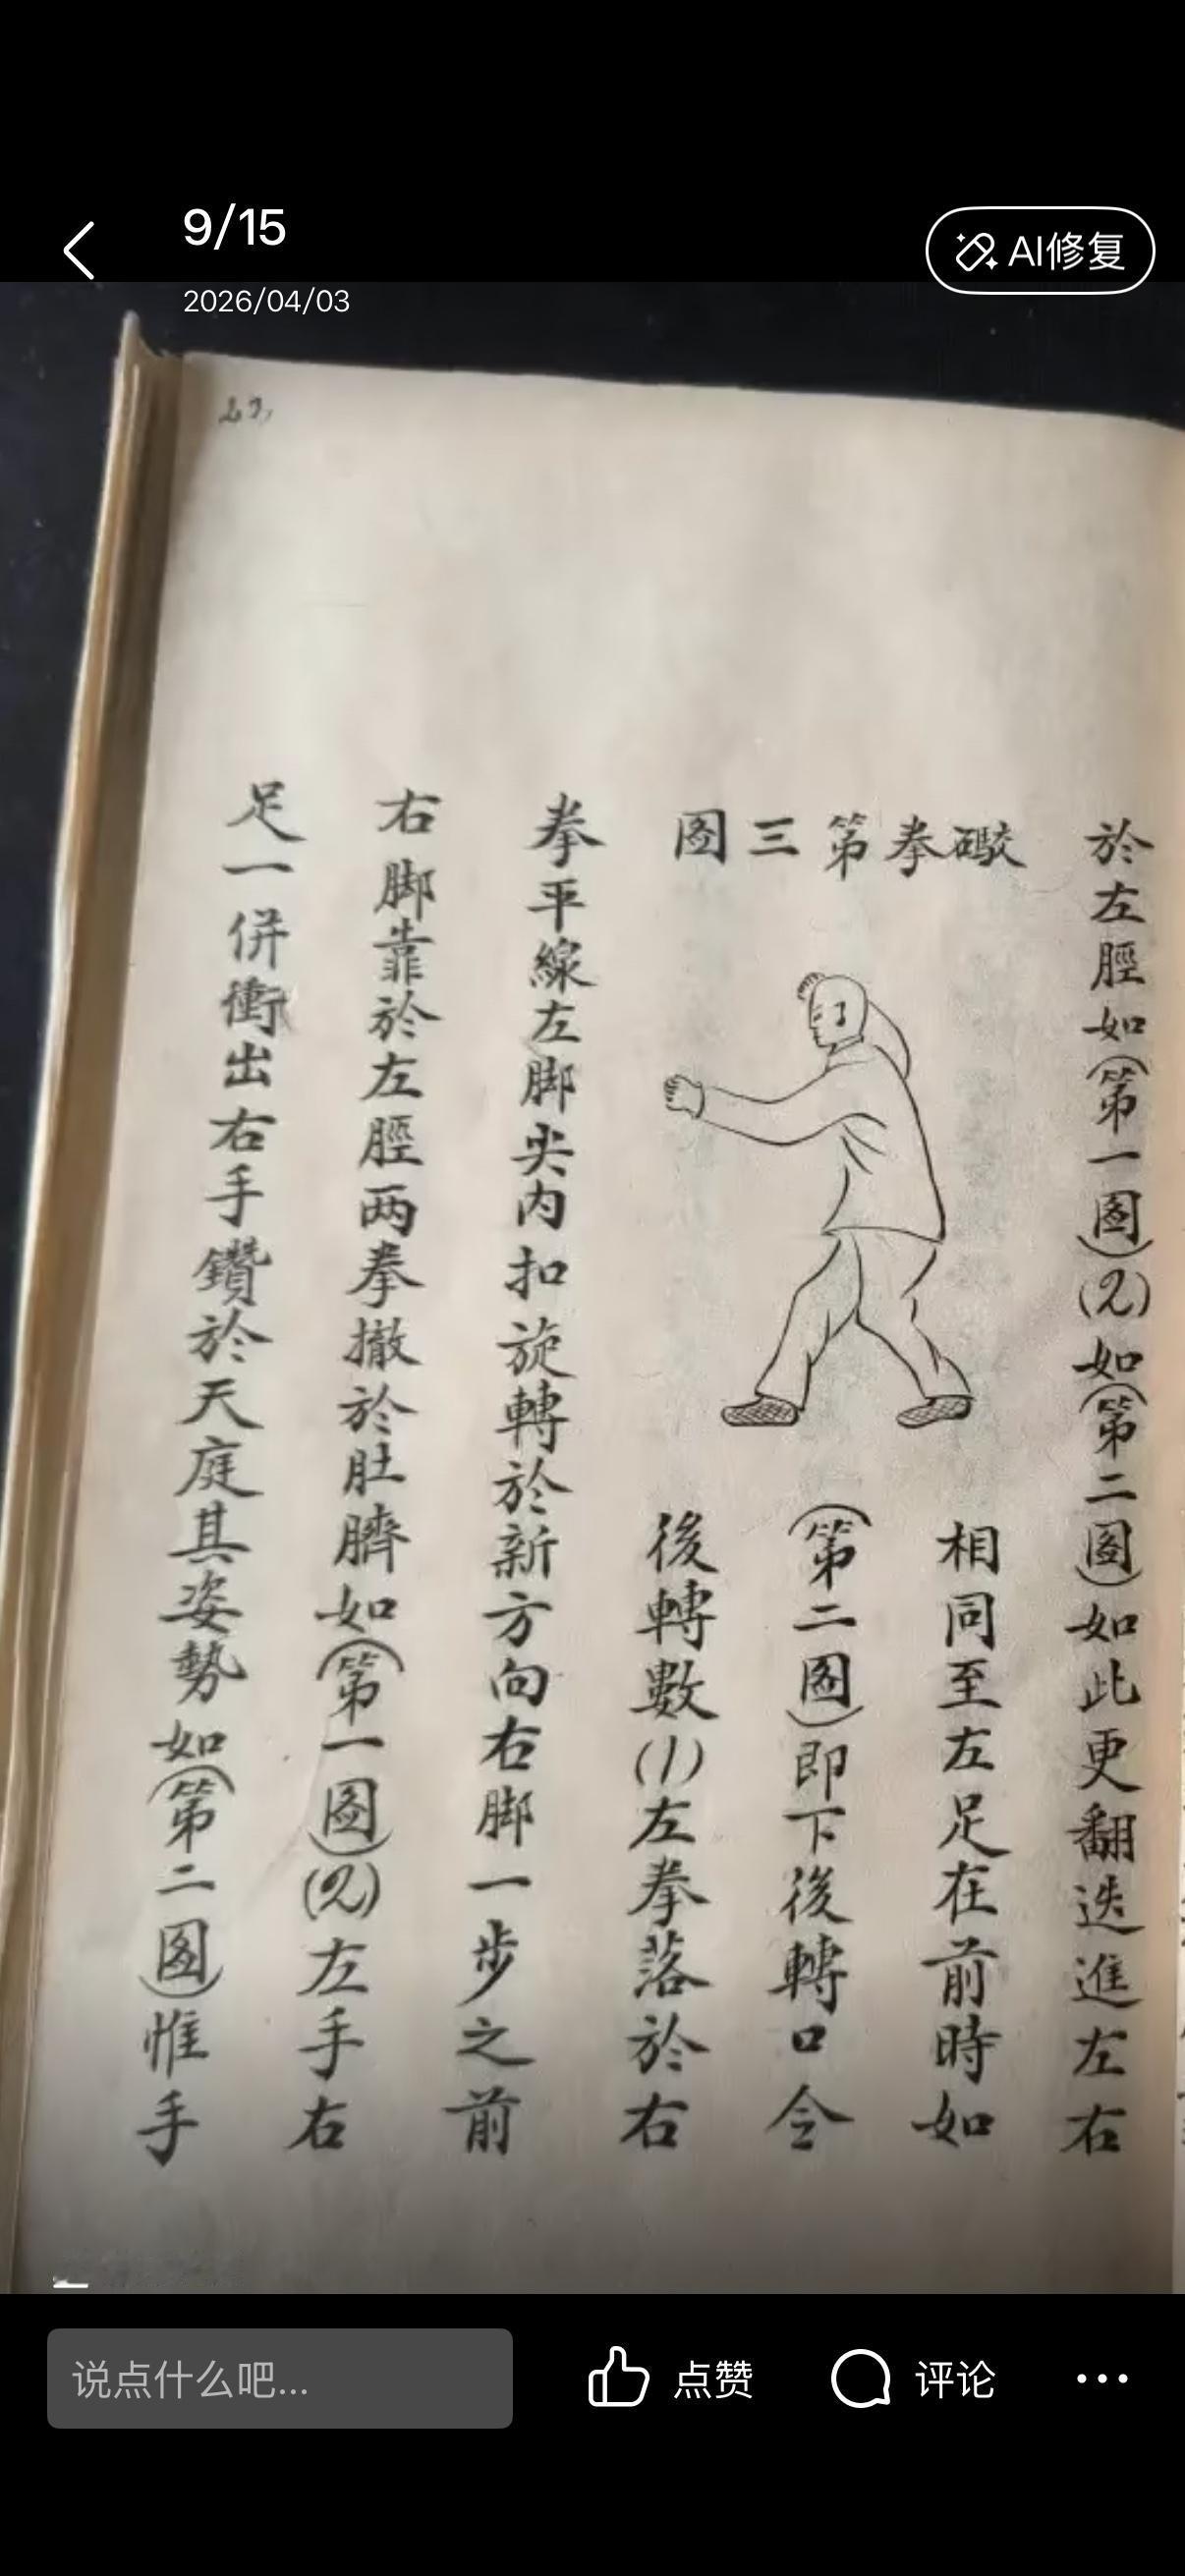 9/15
2026/04/03
AI修复
於左脛如(第一圖)(2)如(第二圖)如此更翻迭進左右
礮拳第三圖
相同至左足在前時如
(第二圖)即下後轉口令
後轉數(1)左拳落於右
拳平線左脚尖内扣旋轉於新方向右脚一步之前
右脚靠於左脛两拳撤於肚臍如(第一圖)(2)左手右
足一併衝出右手鑽於天庭其姿勢如(第二圖)惟手
说点什么吧...
点赞
评论